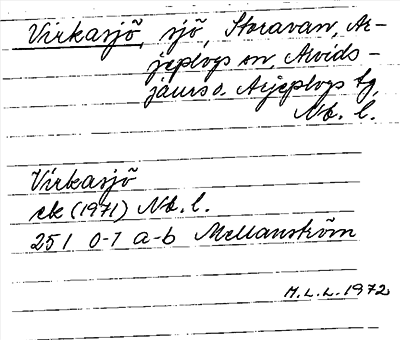 Virkasjö, sjö, Storavan, Ar-
jeplogs sn, Arvids-
jaurs o. Arjeplogs tg,
Nb. l.
Virkasjö
ek (1971) Nb. l.
25 I 0-1 a-b Mellanström
M. L. L. 1972